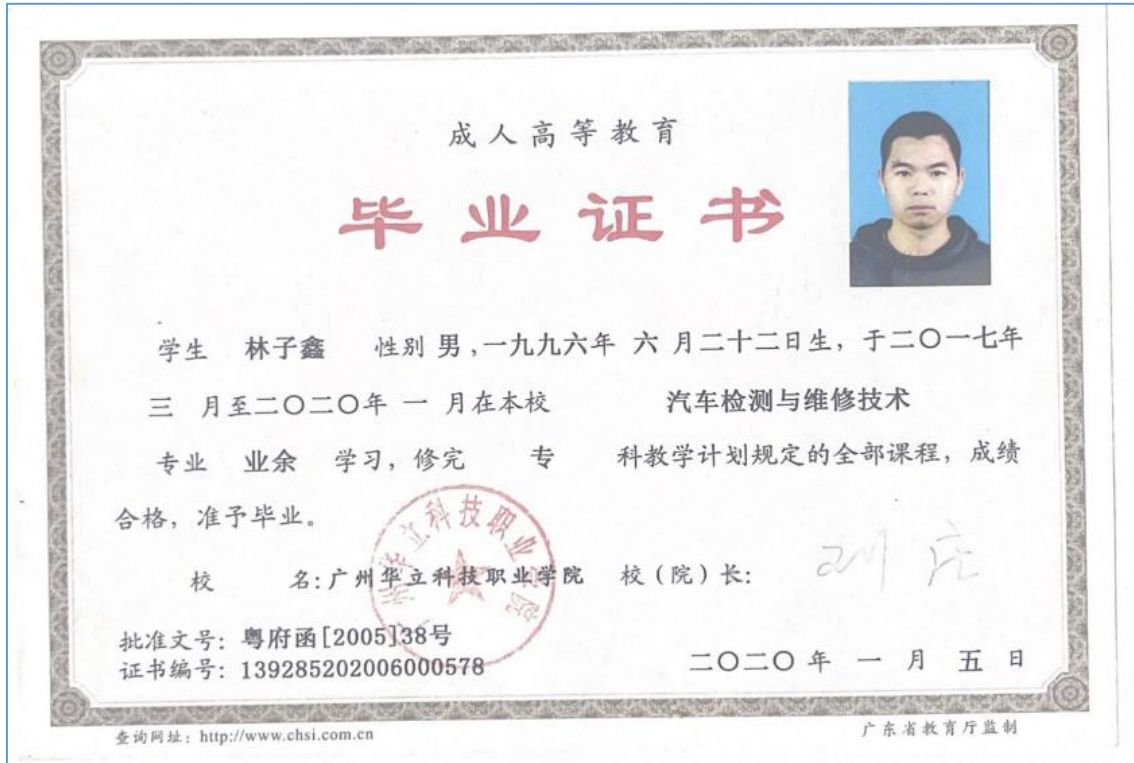 成人高等教育
毕业证书
学生 林子鑫 性别 男，一九九六年 六 月二十二日生，于二〇一七年
三 月至二〇二〇年 一 月在本校 汽车检测与维修技术
专业 业余 学习，修完 专 科教学计划规定的全部课程，成绩
合格，准予毕业。
校 名：广州华立科技职业学院 校（院）长：
批准文号：粤府函[2005]38号
证书编号：139285202006000578
二〇二〇年 一 月 五 日
查询网址：http://www.chsi.com.cn
广东省教育厅监制